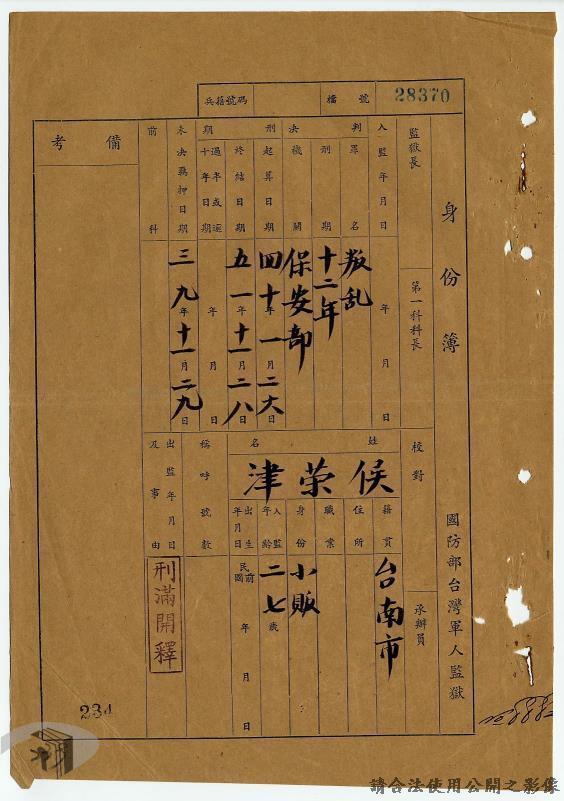 兵籍號碼
檔號
28370
身份簿
國防部台灣軍人監獄
監獄長
第一科科長
校對
承辦員
入監年月日
年月日
判決
罪名
叛乱
刑期
十二年
機關
保安部
刑期
起算日期
四十年一月二六日
終結日期
五一年十一月二八日
過半或逾十年日期
年月日
未決羈押日期
三九年十一月二九日
前科
備考
姓名
侯荣津
籍貫
台南市
住所
職業
身份
小販
入監年齡
二七歲
出生年月日
民前國
年月日
稱呼號數
出監年月日及事由
刑滿開釋
234
請合法使用公開之影像